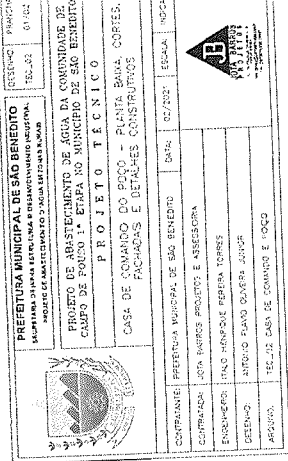 PREFEITURA MUNICIPAL DE SÃO BENEDITO
PROJETO DE ABASTECIMENTO D'ÁGUA EM ZONAS RURAIS
DESENHO
TEC_02
PRANCHA
01/02
PROJETO DE ABASTECIMENTO DE ÁGUA DA COMUNIDADE DE
CAMPO DE POUSO 1ª ETAPA NO MUNICÍPIO DE SÃO BENEDITO
PROJETO TÉCNICO
CASA DE COMANDO DO POÇO - PLANTA BAIXA, CORTES,
FACHADAS E DETALHES CONSTRUTIVOS
CONTRATANTE: PREFEITURA MUNICIPAL DE SÃO BENEDITO
DATA: 02/2021
ESCALA: INDICA
CONTRATADA: JOTA BARROS PROJETOS E ASSESSORIA
ENGENHEIRO: ITALO HENRIQUE PEREIRA TORRES
DESENHO: ANTONIO FLAVIO OLIVEIRA JUNIOR
ARQUIVO: TEC_02 CASA DE COMANDO E POÇO
JB
JOTA BARROS
PROJETOS